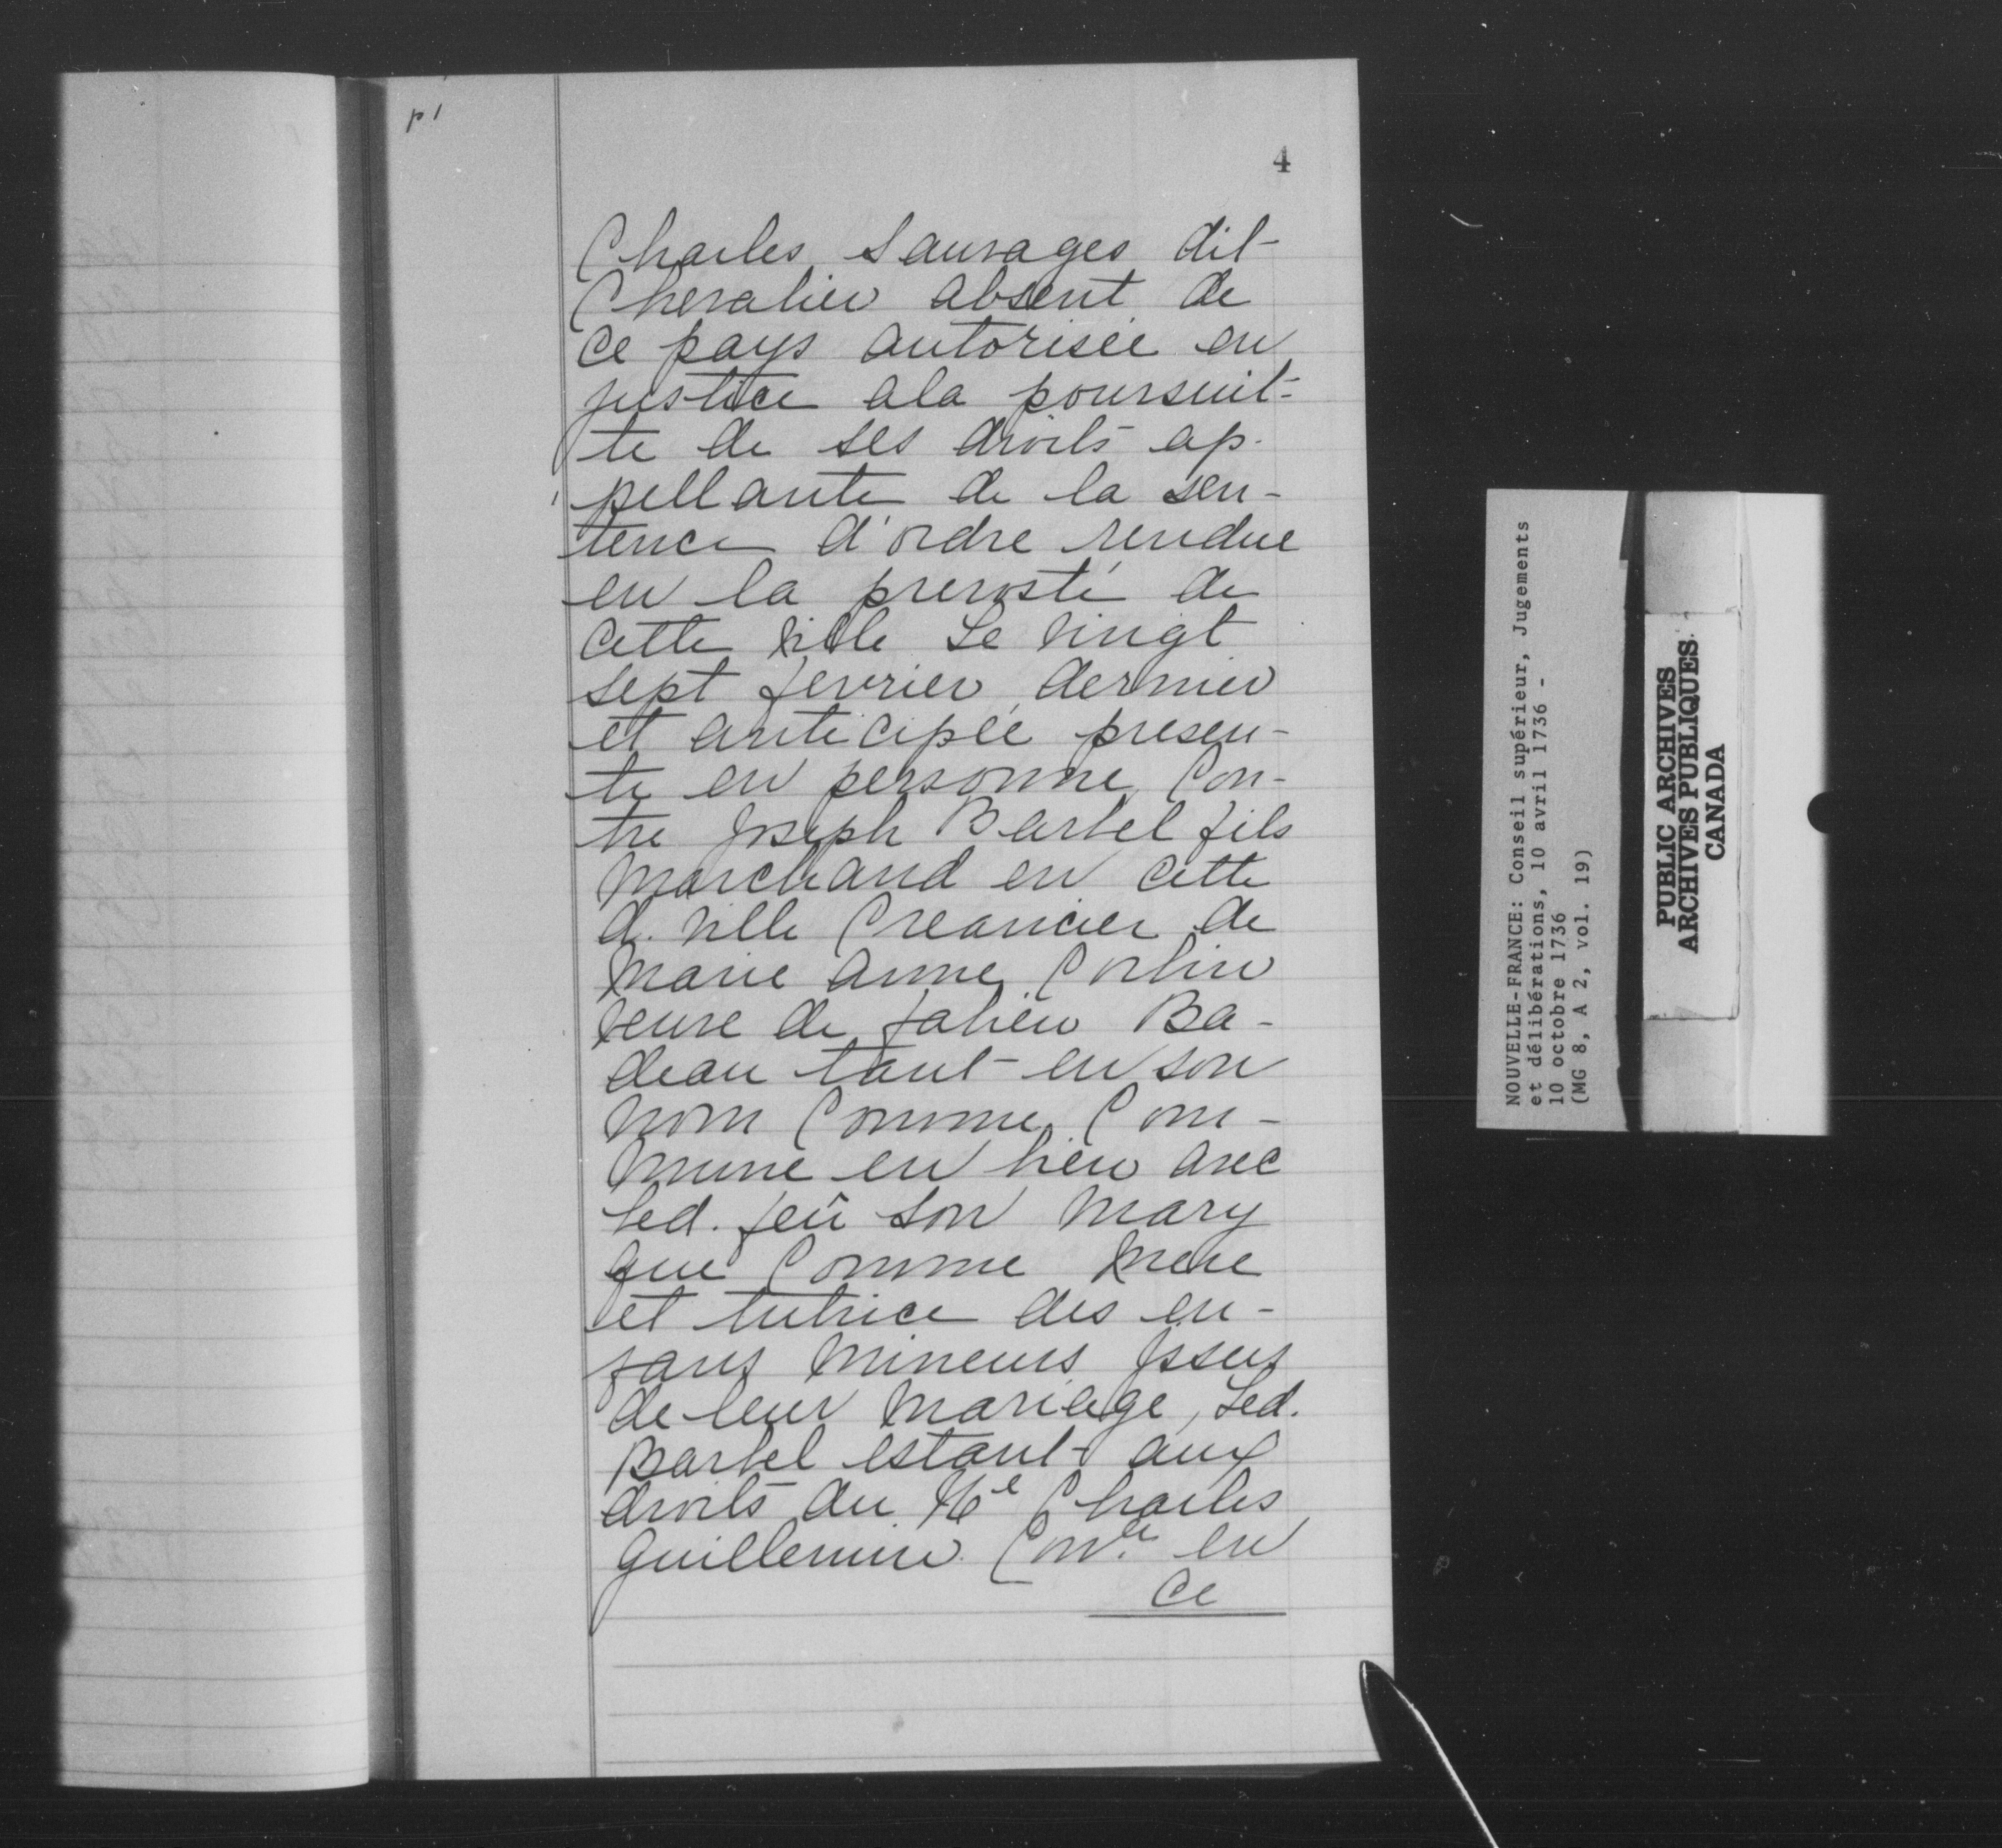 p 1
4
Charles Sauvages dit
Chevalier absent de
ce pays autorisée en
justice a la poursuit-
te de ses droits ap-
pellante de la sen-
tence d'ordre rendue
en la prevosté de
cette ville Le vingt
sept fevrier dernier
et anticipée presen-
te en personne Con-
tre Joseph Barbel fils
Marchand en cette
d. ville Creancier de
Marie Anne Corbin
veuve de fabien Ba-
deau tant en son
nom Comme Com-
mune en bien avec
led. feû son Mary
que Comme Mere
et tutrice des en-
fans mineurs Issus
de leur mariage, Led.
Barbel estant aux
droits du Me Charles
guillemin Con.er en
Ce
NOUVELLE-FRANCE: Conseil supérieur, Jugements
et délibérations, 10 avril 1736 -
10 octobre 1736
(MG 8, A 2, vol. 19)
PUBLIC ARCHIVES
ARCHIVES PUBLIQUES
CANADA